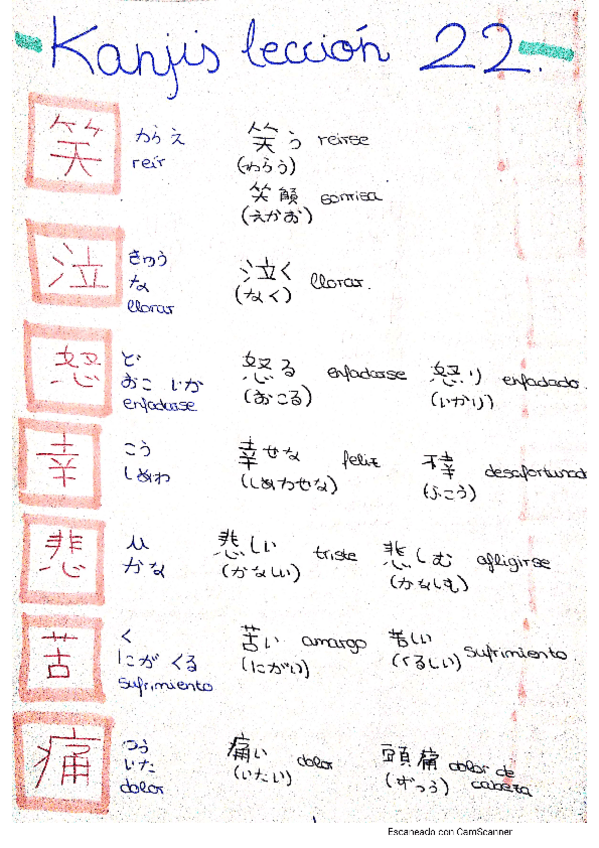 Kanjis lección 22.
笑 わらえ 笑う reírse
reír (わらう)
笑顔 sonrisa
(えがお)
泣 きゅう 泣く llorar.
な (なく)
llorar
怒 ど 怒る enfadarse 怒り enfadado.
おこ いか (おこる) (いかり)
enfadarse
幸 こう 幸せな feliz 不幸 desafortunad
しあわ (しあわせな) (ふこう)
悲 ひ 悲しい triste 悲しむ afligirse
かな (かなしい) (かなしむ)
苦 く 苦い amargo 苦しい sufrimiento.
にが くる (にがい) (くるしい)
sufrimiento
痛 つう 痛い dolor 頭痛 dolor de
いた (いたい) (ずつう) cabeza
dolor
Escaneado con CamScanner